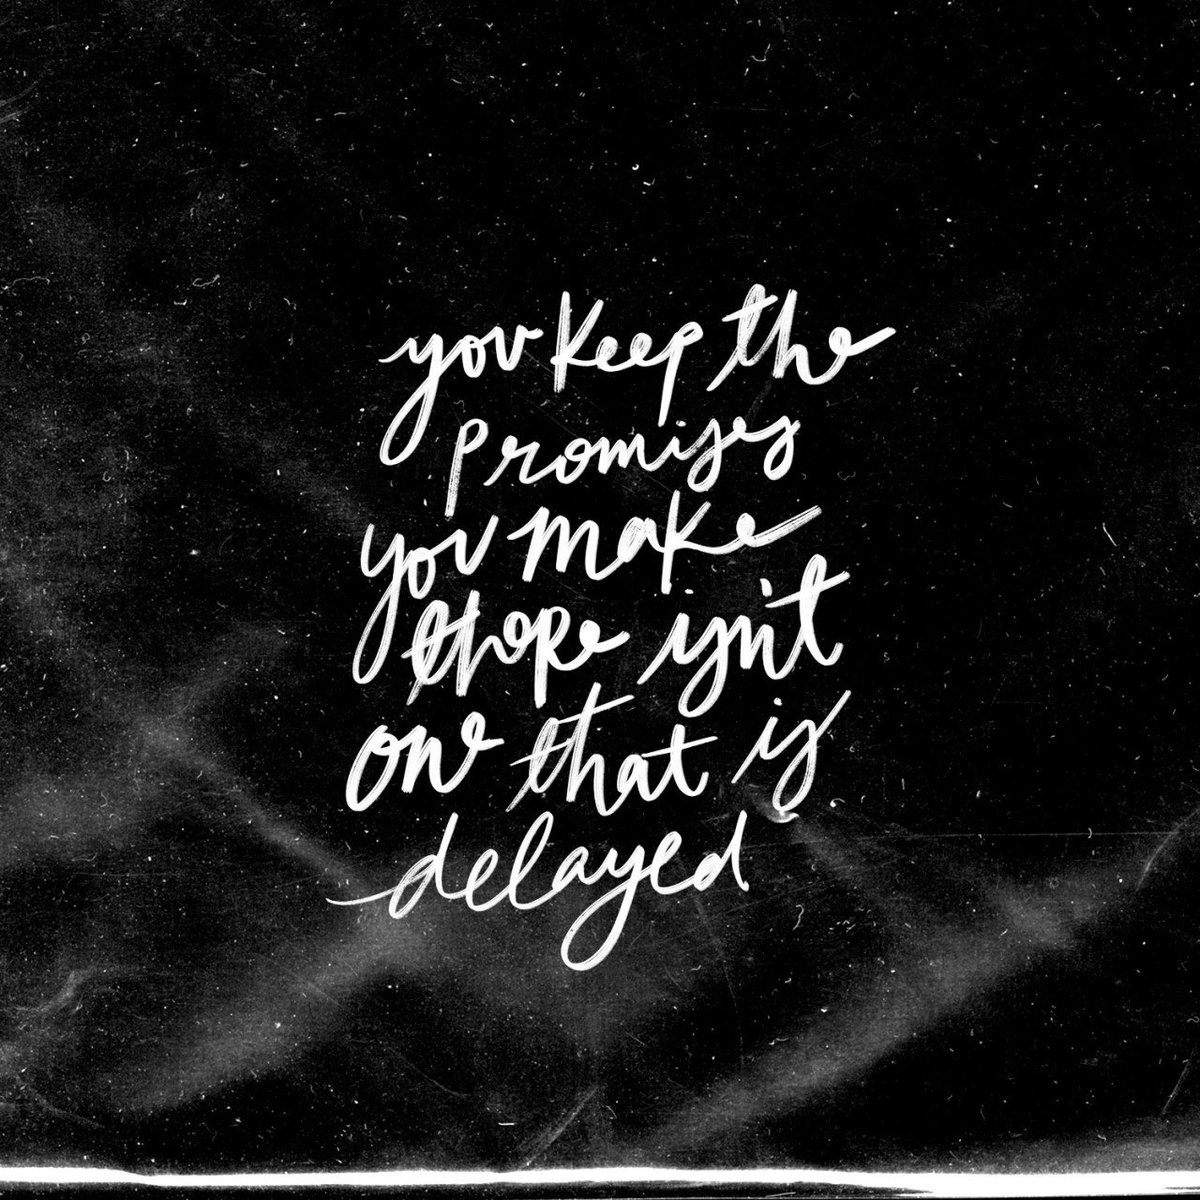 you keep the
promises
you make
there isn't
one that is
delayed